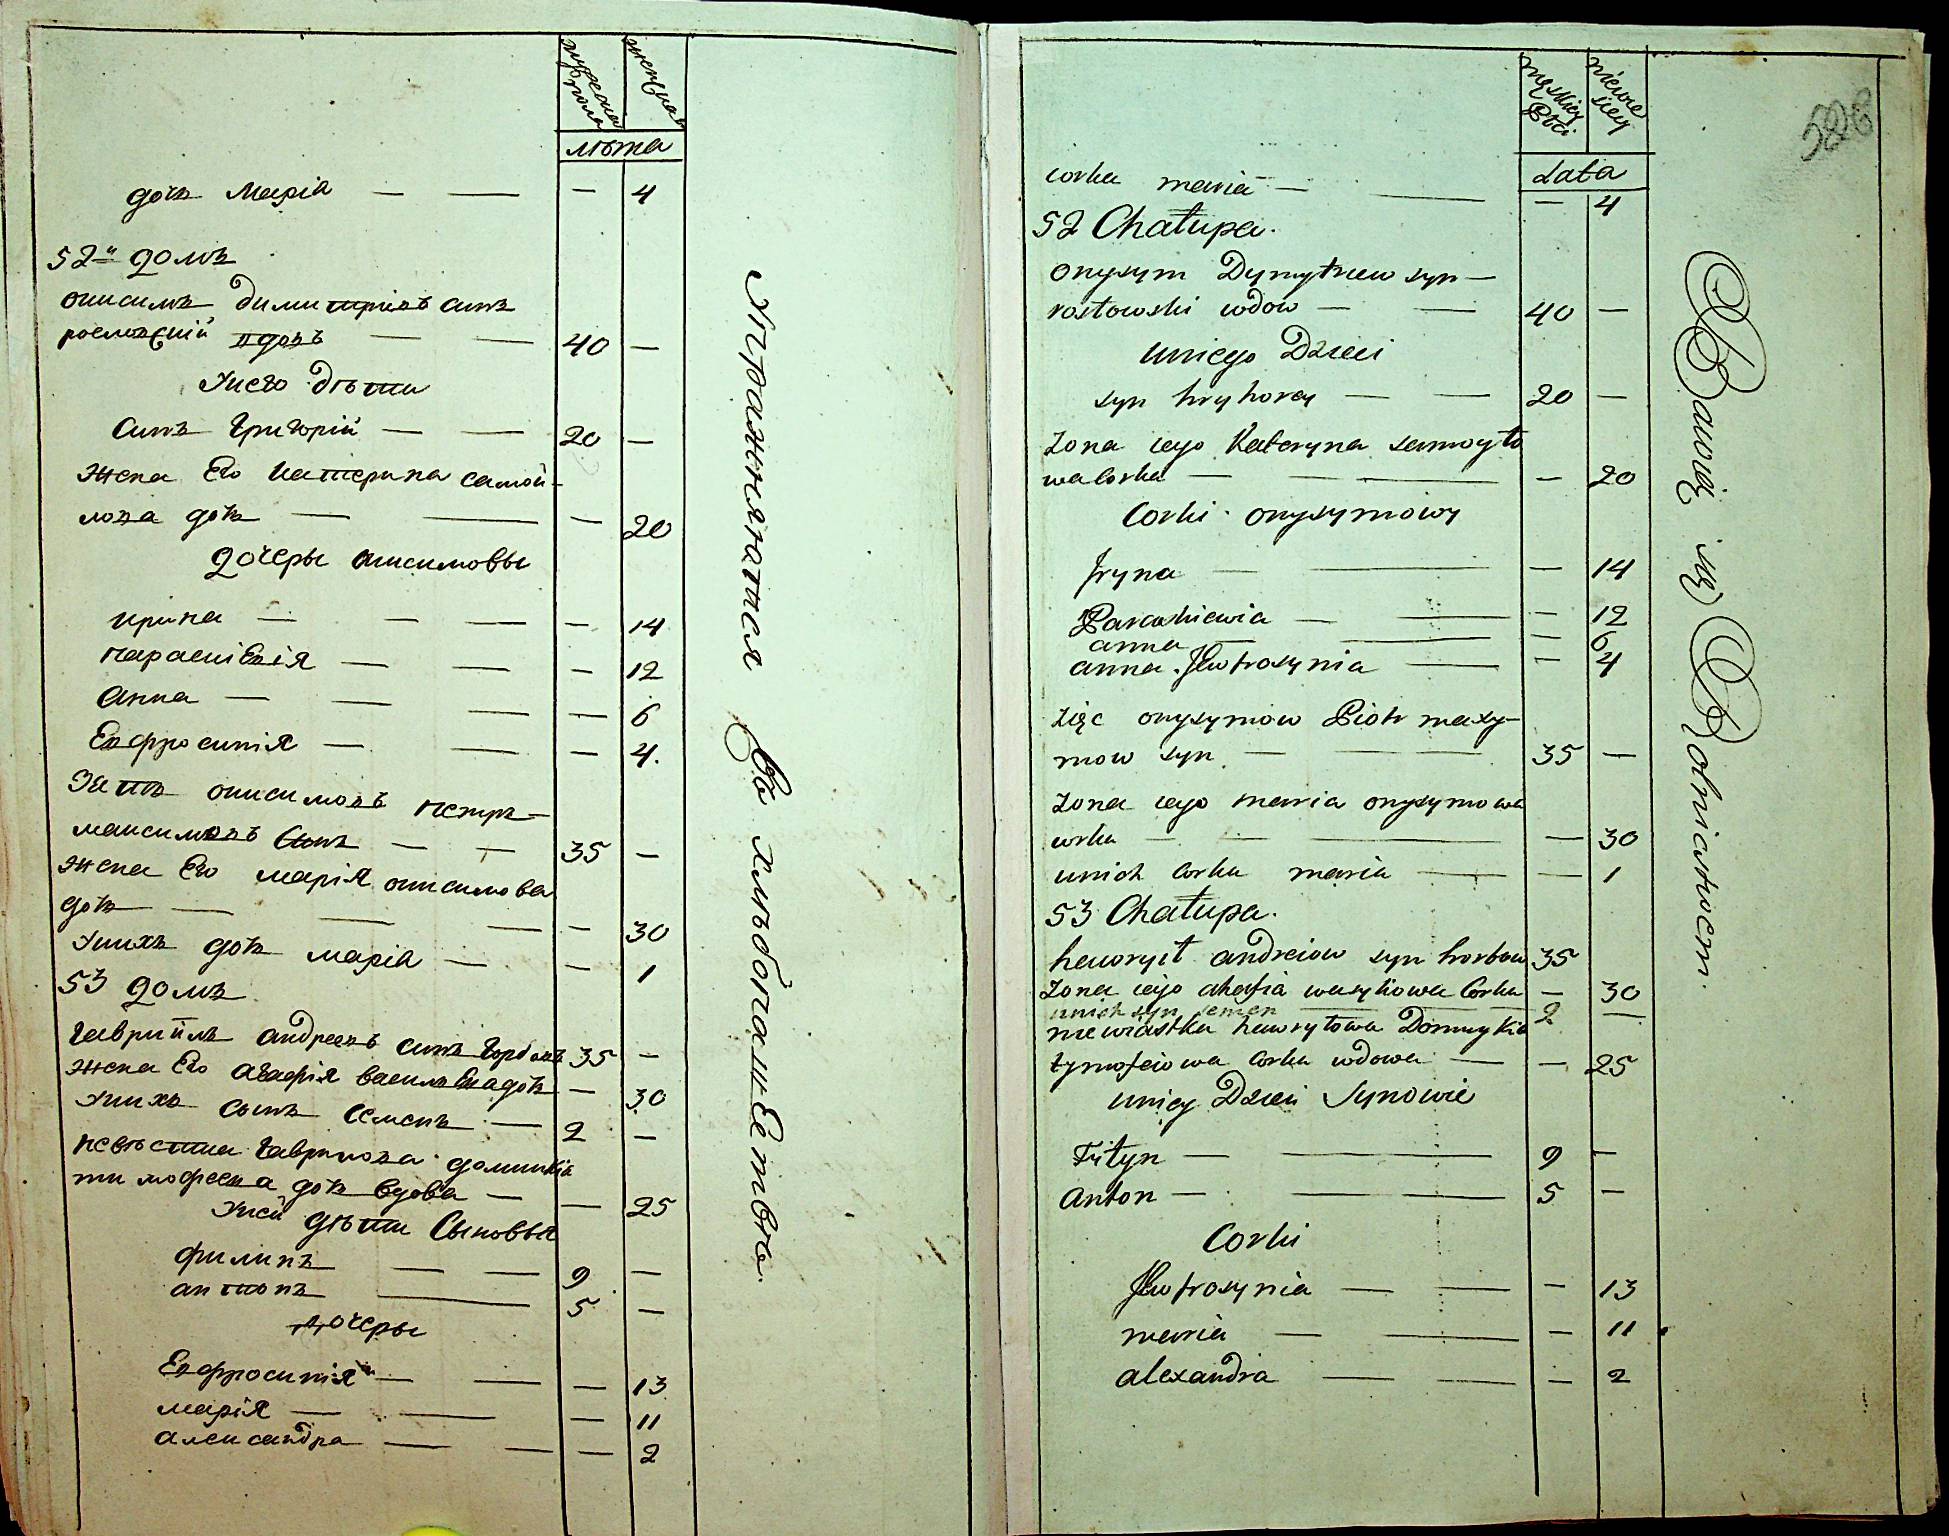 мужеска пола
женска
лѣта
дочь Марія — — — 4
52й домъ
онисимъ димитріевъ синъ
рославскій вдовъ — — 40 —
У него дѣти
Синъ Григорій — — 20 —
Жена Его Катерина самой-
лова дочь — — — 20
Дочеры онисимовы
ирина — — — — 14
параскіевія — — — 12
Анна — — — — 6
Евфросинія — — — 4.
Зять онисимовъ петръ
максимовъ Сынъ — — 35 —
Жена Его марія онисимова
дочь — — — — 30
У нихъ дочь марія — — 1
53 домъ
гавріилъ андреевъ синъ Горбовъ 35 —
Жена Его агафія василіева дочь — 30
У нихъ сынъ Семенъ — 2 —
невѣстка гаврилова доминикія
тимофеева дочь вдова — — 25
У ней дѣти Сыновья
филипъ — — 9 —
антонъ — 5 —
Дочеры
Евфросинія — — — 13
марія — — — 11
александра — — — 2
Упражняются въ хлѣбопашественномъ.
męskiey Płci
niewieściey
Lata
corka maria — — — 4
52 Chałupa.
onysym Dymytriew syn —
rosłowski wdow — — 40 —
u niego Dzieci
syn hryhorey — — 20 —
Zona iego Kateryna samoyło
wa Corka — — — — 20
Corki onysymowy
Jryna — — — 14
Paraskiewia — — — 12
anna — — — 6
anna Jewfrosynia — — 4
Zięc onysymow Piotr maxy-
mow syn — — — 35 —
Zona iego maria onysymowa
corka — — — 30
u nich Corka maria — — 1
53 Chałupa.
hawryił andreiow syn horbow 35
Zona iego ahafia wasyliowa Corka — 30
u nich syn semen — — 2 —
niewiastka hawryłowa Domnykia
tymofeiowa Corka wdowa — — 25
u niey Dzieci Synowie
Filyp — — — 9 —
Anton — — — 5 —
Corki
Jewfrosynia — — — 13
maria — — — 11
alexandra — — — 2
Bawią się Rolnictwem.